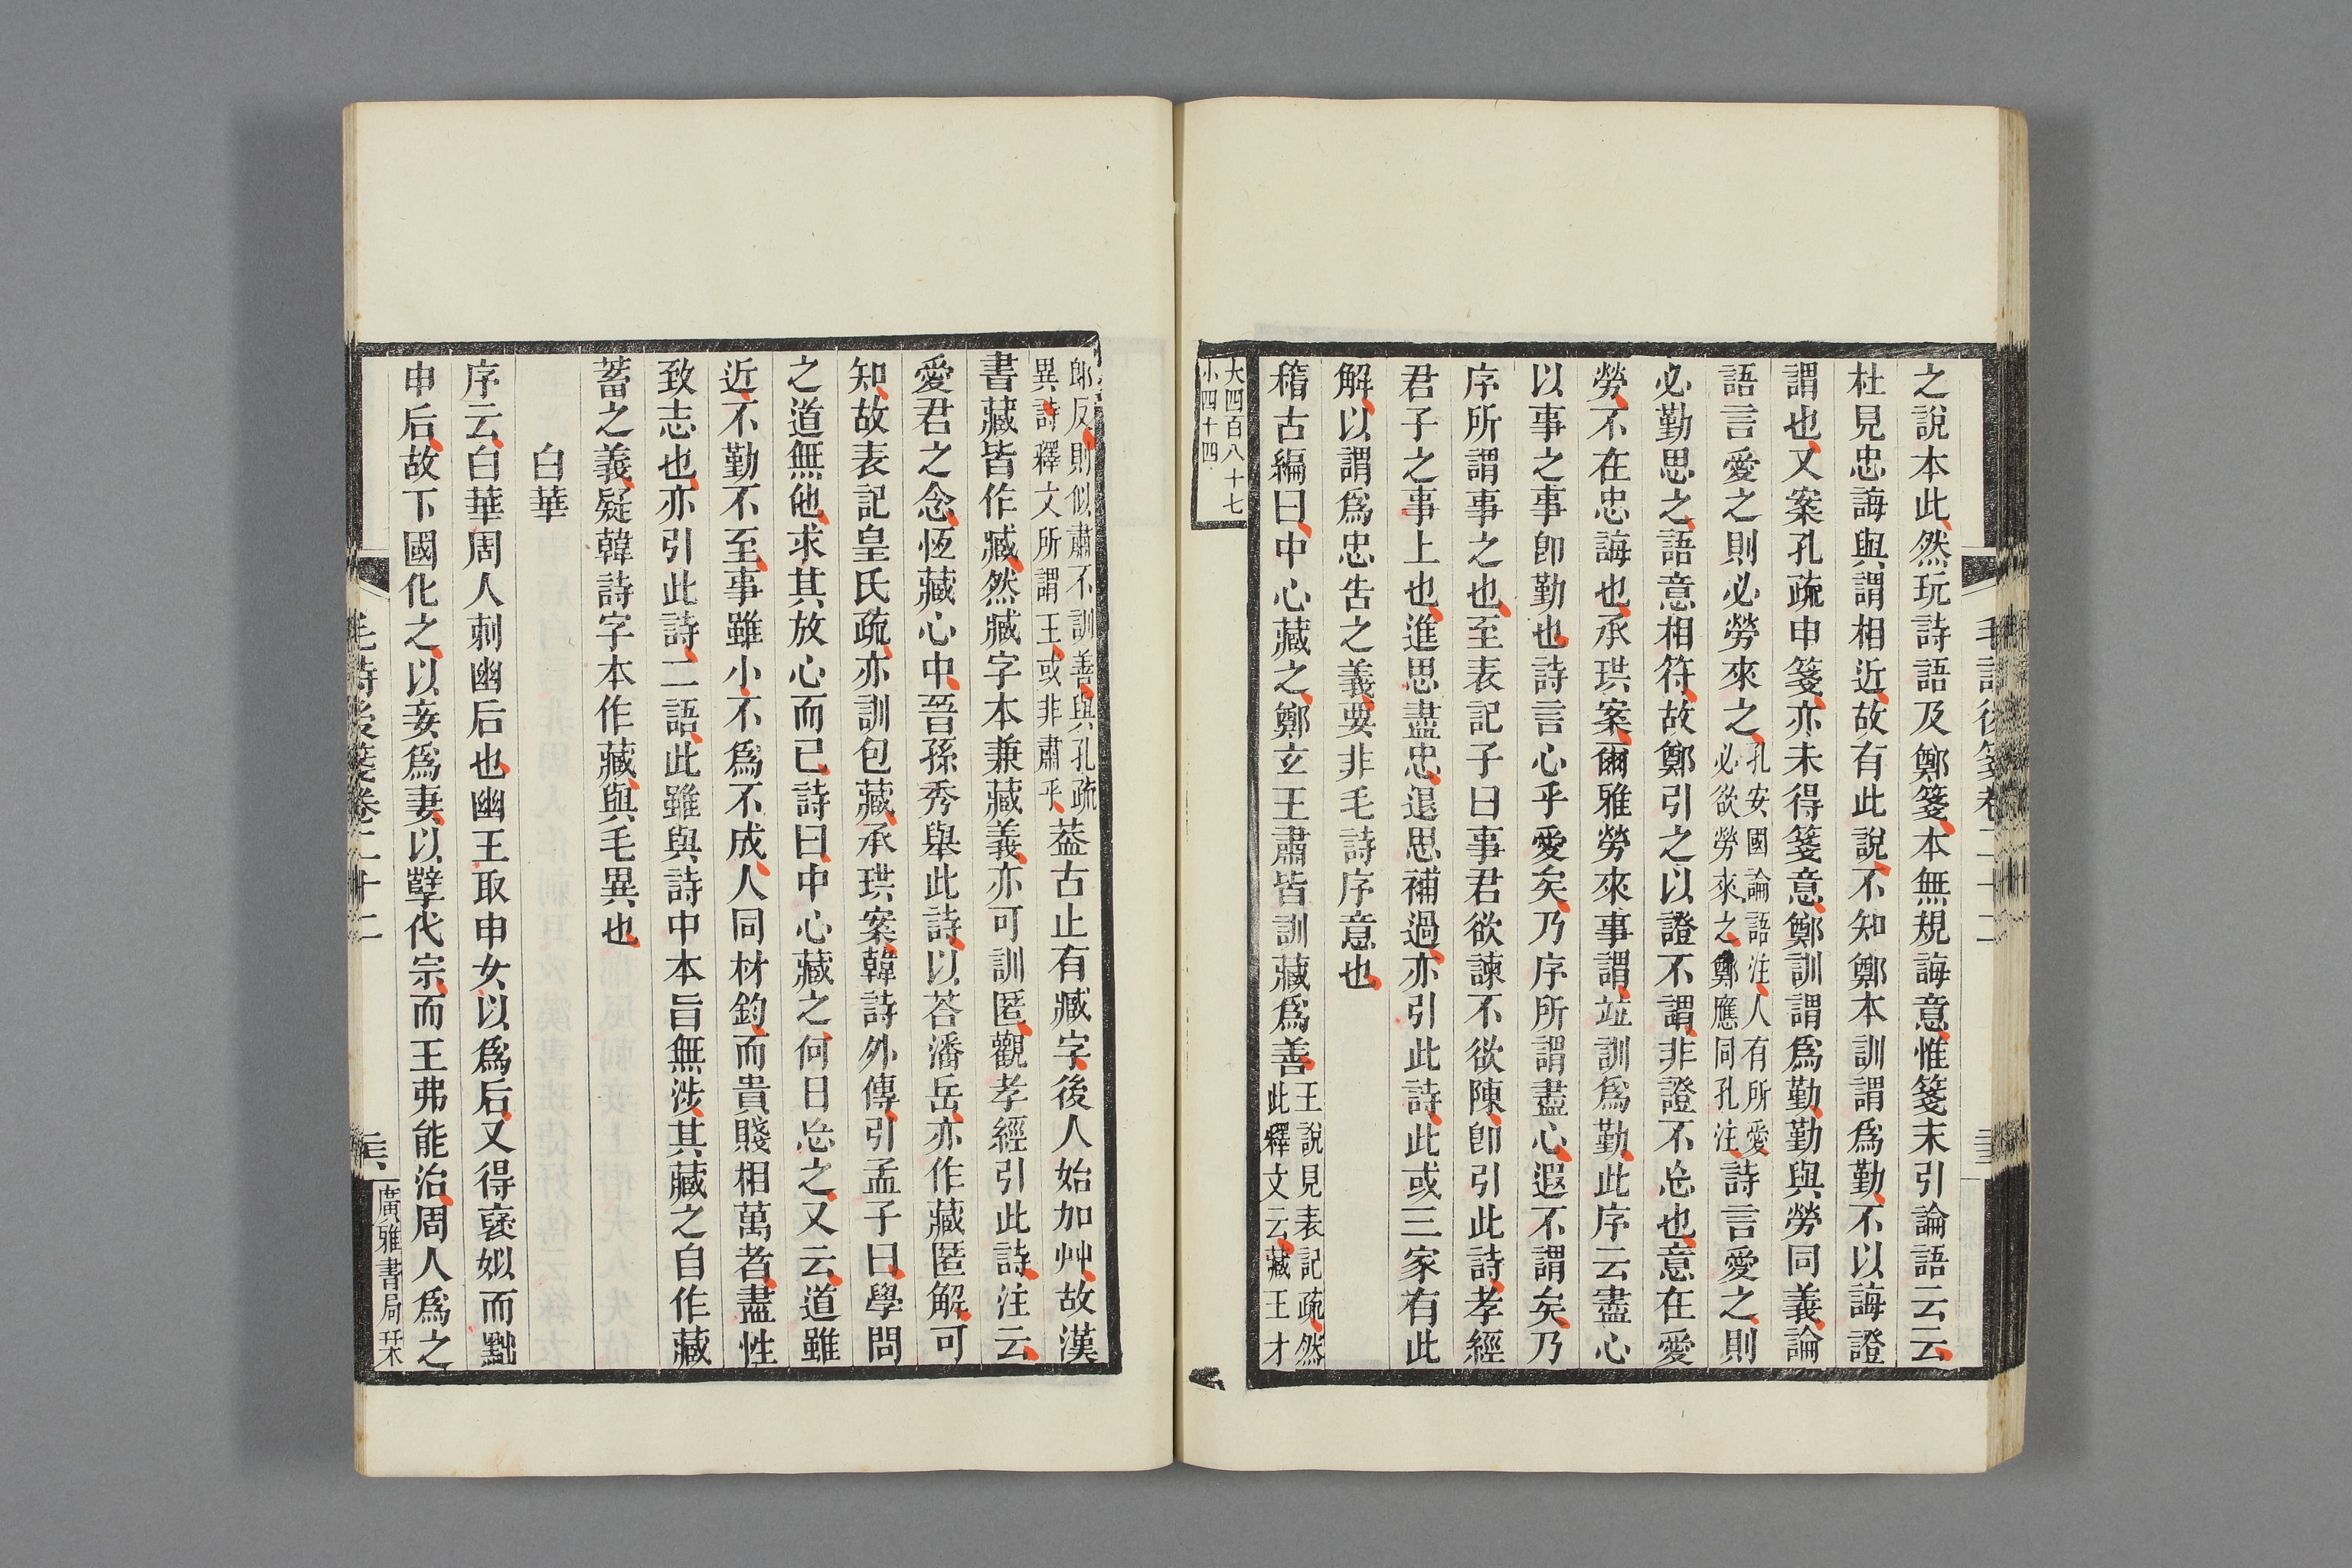 之說本此然玩詩語及鄭箋本無規誨意惟箋末引論語云云
杜見忠誨與謂相近故有此說不知鄭本訓謂爲勤不以誨證
謂也又案孔疏申箋亦未得箋意鄭訓謂爲勤勤與勞同義論
語言愛之則必勞來之孔安國論語注人有所愛必欲勞來之鄭應同孔注詩言愛之則
必勤思之語意相符故鄭引之以證不謂非證不忘也意在愛
勞不在忠誨也承珙案爾雅勞來事謂竝訓爲勤此序云盡心
以事之事卽勤也詩言心乎愛矣乃序所謂盡心遐不謂矣乃
序所謂事之也至表記子曰事君欲諫不欲陳卽引此詩孝經
君子之事上也進思盡忠退思補過亦引此詩此或三家有此
解以謂爲忠告之義要非毛詩序意也
稽古編曰中心藏之鄭玄王肅皆訓藏爲善王說見表記疏然此釋文云藏王才
大四百八十七
小四十四
郎反則似肅不訓善與孔疏異詩釋文所謂王或非肅乎葢古止有臧字後人始加艸故漢
書藏皆作臧然臧字本兼藏義亦可訓匿觀孝經引此詩注云
愛君之念恆藏心中晉孫秀舉此詩以荅潘岳亦作藏匿解可
知故表記皇氏疏亦訓包藏承珙案韓詩外傳引孟子曰學問
之道無他求其放心而已詩曰中心藏之何日忘之又云道雖
近不勤不至事雖小不爲不成人同材鈞而貴賤相萬者盡性
致志也亦引此詩二語此雖與詩中本旨無涉其藏之自作藏
蓄之義疑韓詩字本作藏與毛異也
白華
序云白華周人刺幽后也幽王取申女以爲后又得襃姒而黜
申后故下國化之以妾爲妻以孽代宗而王弗能治周人爲之
毛詩後箋卷二十二
廣雅書局栞